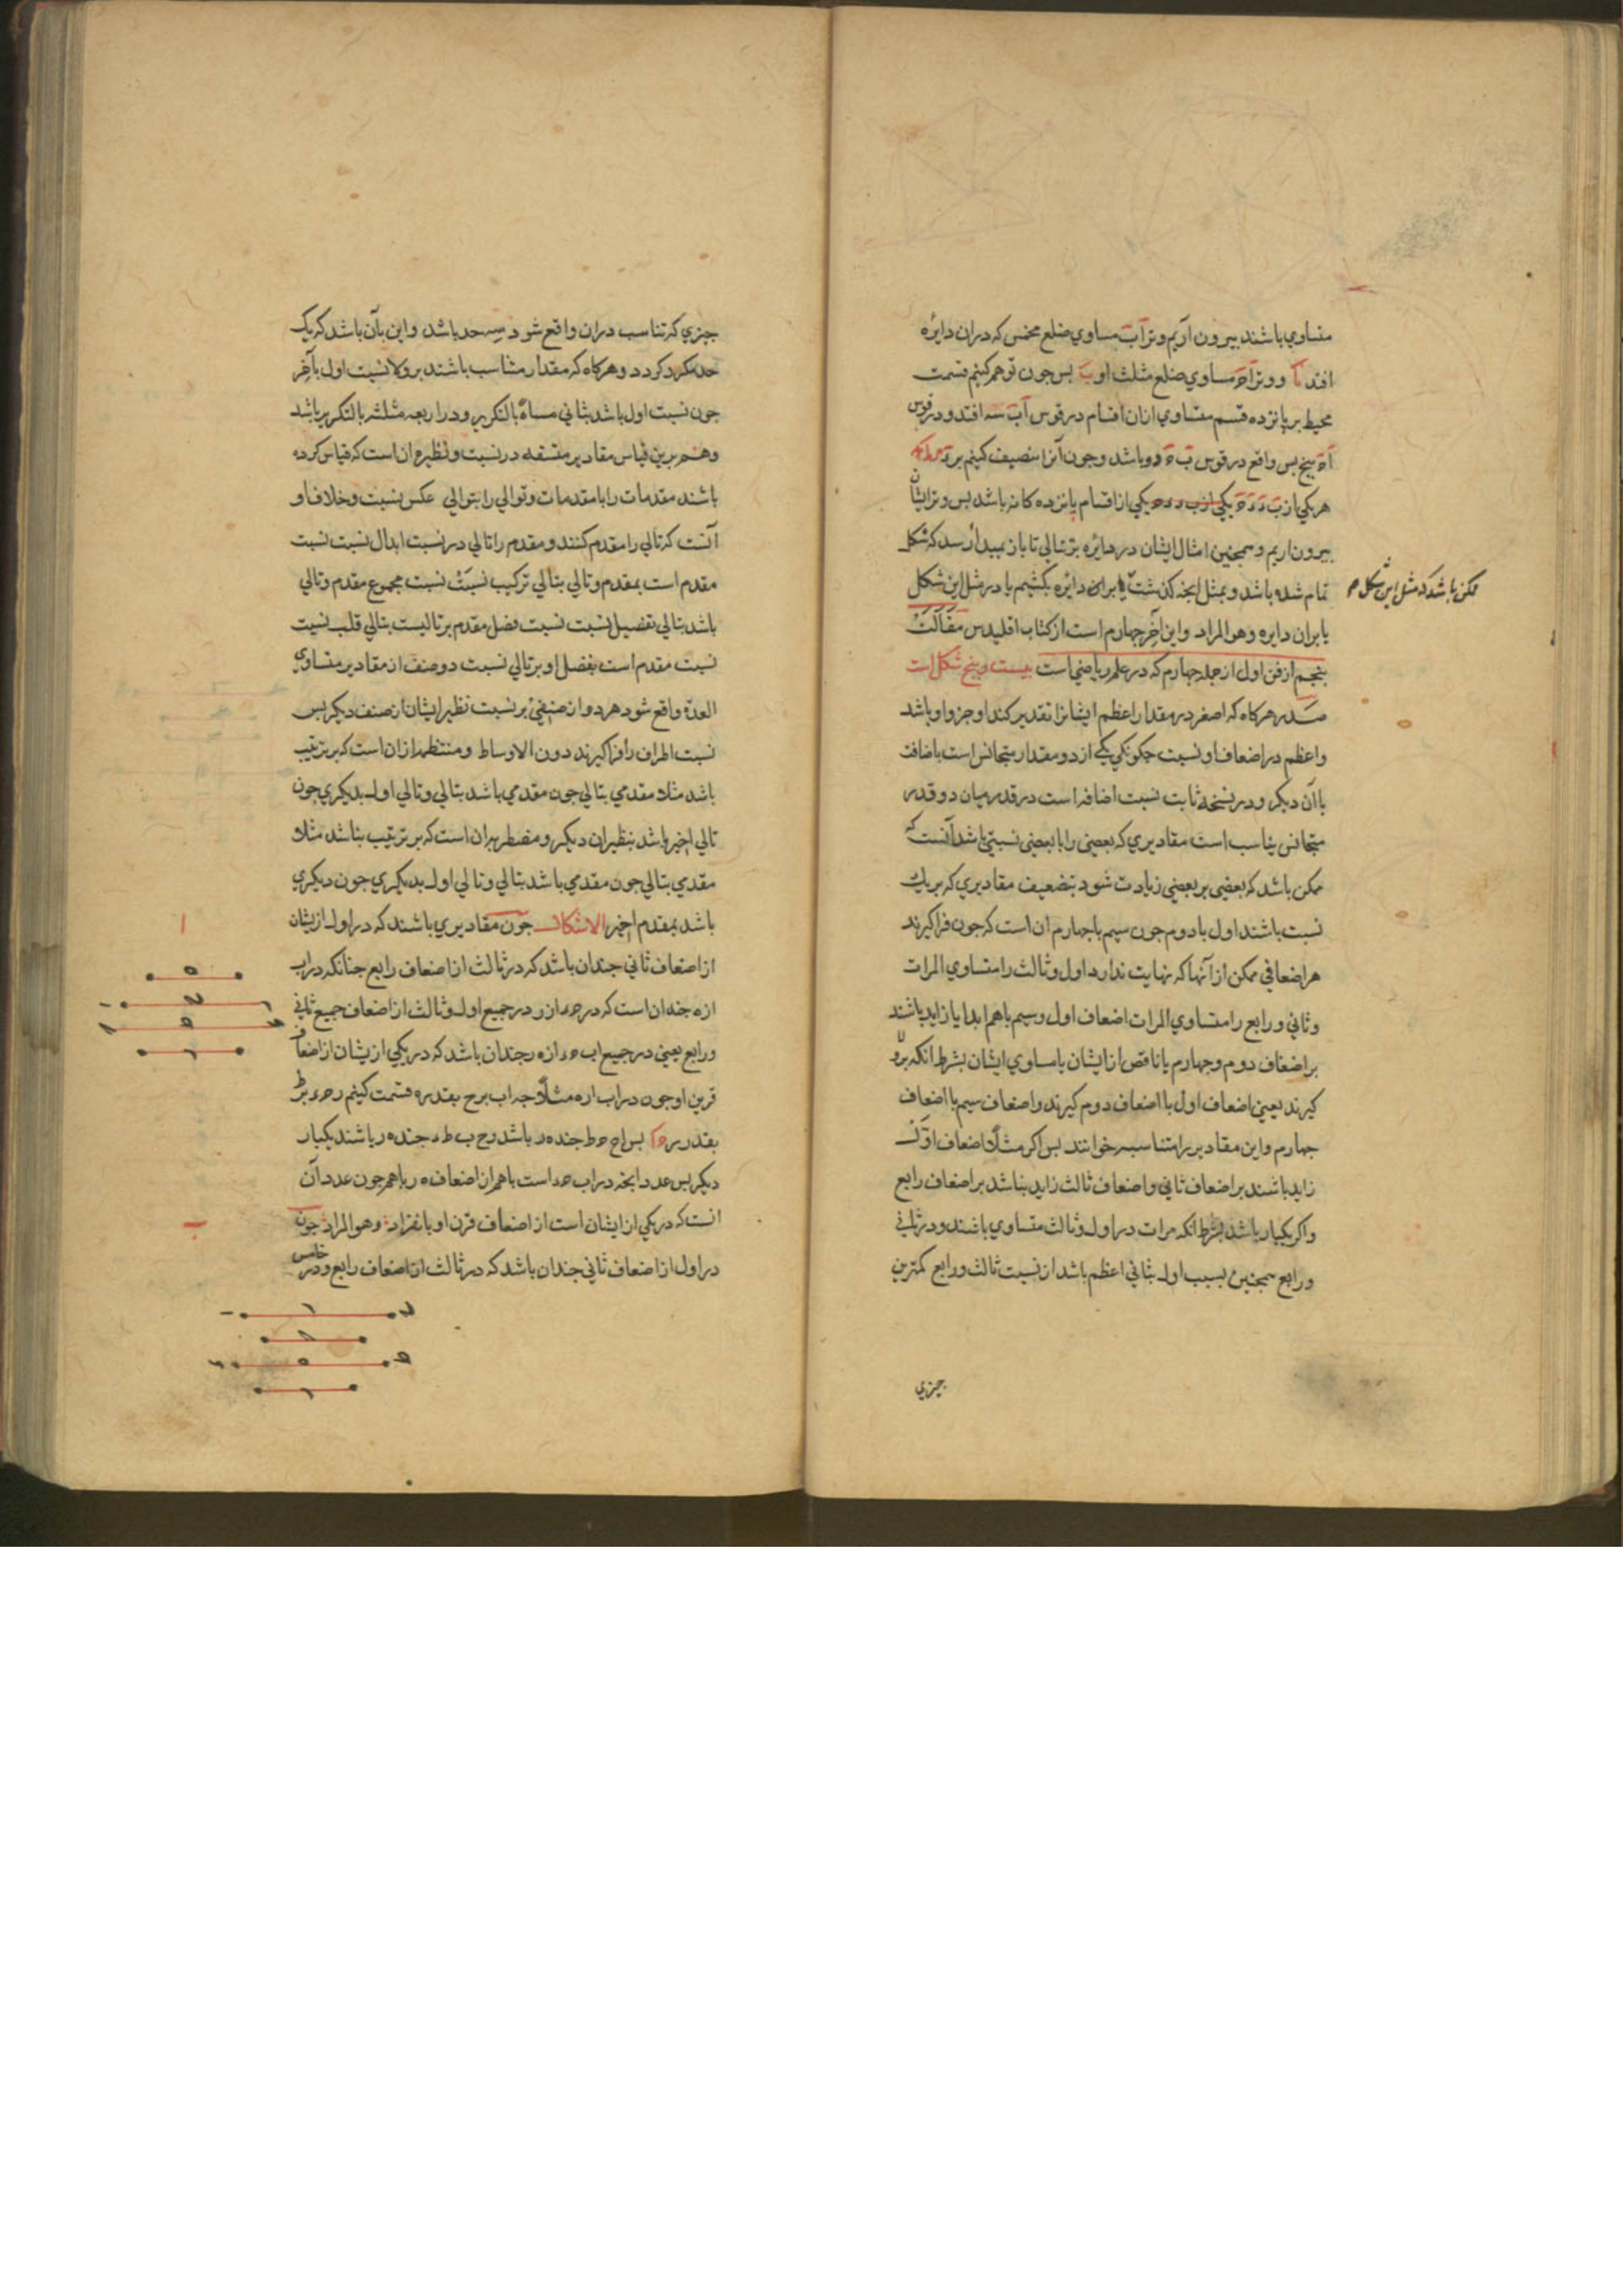 متساوي باشند بيرون اريم وتر آب مساوي ضلع مخمس كه دران دايره
افتد يا ووتر آج مساوي ضلع مثلث او ب بس جون توهم كنيم قسمت
محيط بر پانزده قسم متساوي ازان اقسام در قوس آب سه افتد و در قوس
آج پنج بس واقع در قوس ب ج دو باشد وجون آنرا تنصيف كنيم بر
هر يكي از يكي از اقسام پانزده كانه باشد بس وتر ايشان
بيرون اريم وهمجنين امثال ايشان در دايره بتتالي تا باز بمبدأ رسد كه شكل
تمام شده باشد و بمثل انجه كذشت يا بران دايره بكشيم يا در مثل اين شكل
ممكن باشد كه مثل اين شكل
يا بران دايره وهو المراد واين آخر جهارم است از كتاب اقليدس مقالت
پنجم از فن اول از جمله جهارم كه در علم رياضي است بيست وپنج شكل است
صدر هركاه كه اصغر در مقدار اعظم ايشانرا تقدير كند او جزو او باشد
واعظم در اضعاف او نسبت جكونكي يكي از دو مقدار متجانس است باضافت
با آن ديكر و در نسخه ثابت نسبت اضافه است در قدر ميان دو قدر
متجانس تناسب است مقاديري كه بعضي را با بعضي نسبتي باشد آنست كه
ممكن باشد كه بعضي بر بعضي زيادت شود بتضعيف مقاديري كه بر يك
نسبت باشند اول با دوم جون سيم با جهارم ان است كه جون فرا كيرند
هر اضعافي ممكن از آنها كه نهايت ندارد اول وثالث را متساوي المرات
وثاني ورابع را متساوي المرات اضعاف اول وسيم با هم ابدا يا زايد باشند
بر اضعاف دوم وجهارم يا ناقص از ايشان يا مساوي ايشان بشرط انكه بر ولا
كيرند يعني اضعاف اول با اضعاف دوم كيرند واضعاف سيم با اضعاف
جهارم واين مقادير را متناسبه خوانند بس اكر مثلا اضعاف اول
زايد باشند بر اضعاف ثاني واضعاف ثالث زايد نباشد بر اضعاف رابع
واكر يكبار باشد بشرط انكه مرات در اول وثالث متساوي باشند و در ثاني
ورابع همجنين بسبب اول بثاني اعظم باشد از نسبت ثالث ورابع كمترين
جيزي
جيزي كه تناسب دران واقع شود سه حد باشد واين بآن باشد كه يك
حد مكرر كردد وهركاه كه مقدار متناسب باشند بر ولا نسبت اول بآخر
جون نسبت اول باشد بثاني مثناة بالتكرير و در اربعه مثلثه بالتكرير باشد
وهم برين قياس مقادير متسقه در نسبت ونظيره ان است كه قياس كرده
باشند مقدمات را با مقدمات وتوالي را بتوالي عكس نسبت وخلاف او
آنست كه تالي را مقدم كنند ومقدم را تالي در نسبت ابدال نسبت نسبت
مقدم است بمقدم وتالي بتالي تركيب نسبت نسبت مجموع مقدم وتالي
باشد بتالي تفصيل نسبت نسبت فضل مقدم بر تاليست بتالي قلب نسبت
نسبت مقدم است بفضل او بر تالي نسبت دو صنف از مقادير متساوي
العدة واقع شود هر دو از صنفي بر نسبت نظير ايشان از صنف ديكر بس
نسبت اطراف را فرا كيرند دون الاوساط ومنتظمه ازان است كه بر ترتيب
باشد مثلا مقدمي بتالي جون مقدمي باشد بتالي وتالي اول بديكري جون
تالي اخير باشد بنظير ان ديكر ومضطربه ان است كه بر ترتيب نباشد مثلا
مقدمي بتالي جون مقدمي باشد بتالي وتالي اول بديكري جون ديكري
باشد بمقدم اخير الاشكال جون مقاديري باشند كه در اول ازيشان
ا
از اضعاف ثاني جندان باشد كه در ثالث از اضعاف رابع جنانكه در اب
از ه جندان است كه در ج د از ر در جميع اول وثالث از اضعاف جميع ثاني
ورابع يعني در جميع اب ج د از ه ر جندان باشد كه در يكي ازيشان از اضعاف
قرين او جون در اب از ه مثلا اب بر ح بقدر ه قسمت كنيم و ج د بر ط
بقدر ر بس اح ج ط جند ه ر باشد و ح ب ط د جند ه ر باشند يكبار
ديكر بس عدد انجه در اب ج د است با هم از اضعاف ه ر با هم جون عدد آن
انست كه در يكي از ايشان است از اضعاف قرن او بانفراد وهو المراد جون
ب
در اول از اضعاف ثاني جندان باشد كه در ثالث از اضعاف رابع و در خامس